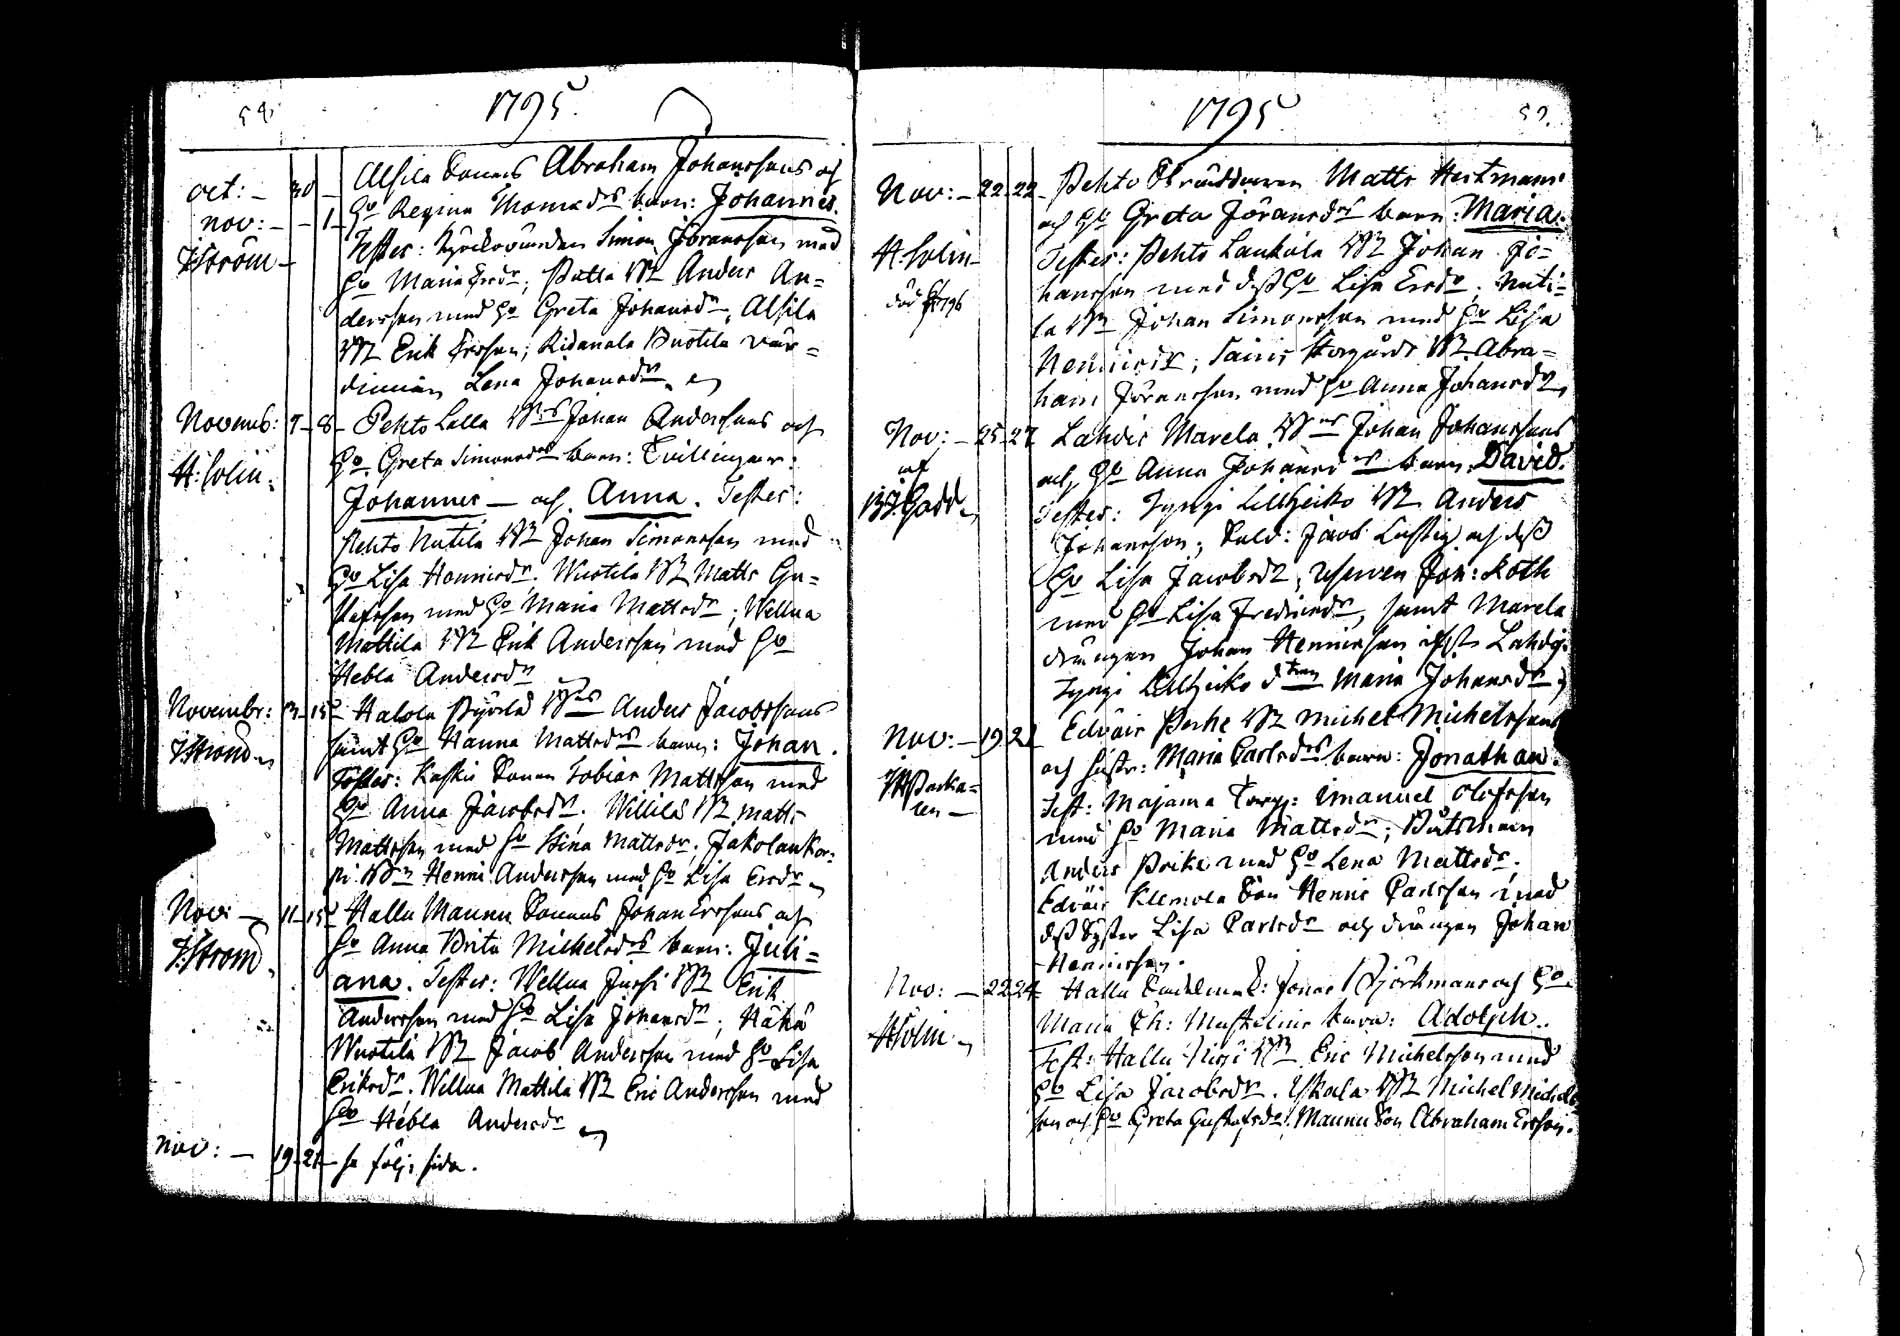 58.
1795.
oct: – 30 – Alsila Sonens Abraham Johanssons och
nov: – – 1 – Ho Regina Thomædrs barn: Johannes.
J:Ström – Testes: Kyrkovärden Simon Jöransson med
Ho Maria Ersdr; Pattla Bn Anders An=
dersson med Ho Greta Johansdr, Alsila
Bn Erik Ersson; Ridanala Buotila vär=
dinnan Lena Johansdr.
Novemb: 7 – 8 – Pehto Lalla Bns Johan Anderssons och
H:Solin. Ho Greta Simonsdrs barn: Tvillingar:
Johannes – och Anna. Testes:
Pehto Nutila Bn Johan Simonsson med
Ho Lisa Hennicsdr. Wuotila Bn Matts Gu=
stafsson med Ho Maria Mattsdr; Wellua
Mattila Bn Erik Andersson med Ho
Hebla Andersdr
Novembr: 13 – 15 Halola Pyörlä Bns Anders Jacobssons
J:Ström samt Ho Hanna Mattsdrs barn: Johan.
Testes: Sonen Tobias Mattsson med
Ho Anna Jacobsdr. Willilä Bn Matts
Mattsson med Ho Stina Mattsdr. Jakolankor=
pi Bn Henric Andersson med Ho Lisa Ersdr
Nov: – 11 – 15 Hallu Maunu Sonens Johan Erssons och
J.Ström. Ho Anna Brita Michelsdrs barn: Juli=
ana. Testes: Wellua Jussi Bn Erik
Andersson med Ho Lisa Johansdr; Häkä
Wuotila Bn Jacob Andersson med Ho Lisa
Eriksdr. Wellua Mattila Bn Eric Andersson med
Ho Hebla Andersdr
nov: – 19 – 21 – se följ: sida.
1795 59.
Nov: – 22 22 – Pehto Skräddaren Matts Hertmans
och Ho Greta Jöransdrs barn: Maria.
H.Solin Testes: Pehto Laukola Bn Johan Jo=
hansson med dess Ho Lisa Ersdr. Nuti=
la Bn Johan Simonsson med Ho Lisa
Hennicsdr; Sairis Storgårds Bn Abra=
ham Jöransson med Ho Anna Johansdr,
Nov: – 25 27 Lahdis Marela Bns Johan Johanssons
af och Ho Anna Johansdrs barn David.
B:J:Gadd Testes: Tyrvi Lillheiko Bn Anders
Johansson; Sold: Jacob Lustig och dess
Ho Lisa Jacobsdr, Joh: Roth
med Ho Lisa Fredricsdr, samt Marela
drängen Johan Hennicsson Lahdis
Tyrvi Lillheiko dtren Maria Johansdr
Nov: – 19 21 Edväis Perhe Bn Michel Michelssons
och hustr: Maria Carlsdrs barn: Jonathan.
Test: Majama Torp: Emanuel Olofsson
med Ho Maria Mattsdr; Båtsman
Anders Prike med Ho Lena Mattsdr.
Edväis Klemola Son Henric Carlsson med
dess Syster Lisa Carlsdr och drängen Johan
Hennicsson.
Nov: – 22 24 Hallu Jonas Björkmans och Ho
HSolin Maria Ch: barn: Adolph.
Test: Hallu Bn Eric Michelsson med
Ho Lisa Jacobsdr. Yskala Bn Michel Michels
son och Ho Greta Gustafsdr. Maunu Son Abraham Ersson.